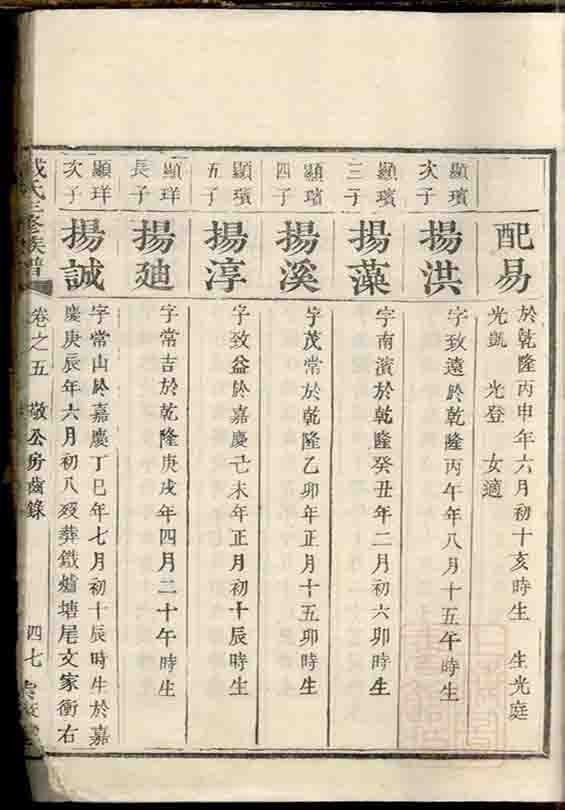 配易
於乾隆丙申年六月初十亥時生　生光庭
光凱　光登　女適
顯璸
次子
揚洪
字致遠於乾隆丙午年八月十五午時生
顯璸
三子
揚藻
字南濱於乾隆癸丑年二月初六卯時生
顯璸
四子
揚溪
字茂常於乾隆乙卯年正月十五卯時生
顯璸
五子
揚淳
字致益於嘉慶己未年正月初十辰時生
顯珜
長子
揚廸
字常吉於乾隆庚戌年四月二十午時生
顯珜
次子
揚誠
字常山於嘉慶丁巳年七月初十辰時生於嘉
慶庚辰年六月初八歿葬鐵爐塘尾文家衝右
氏三修族譜
卷之五　敬公房齒錄
四七